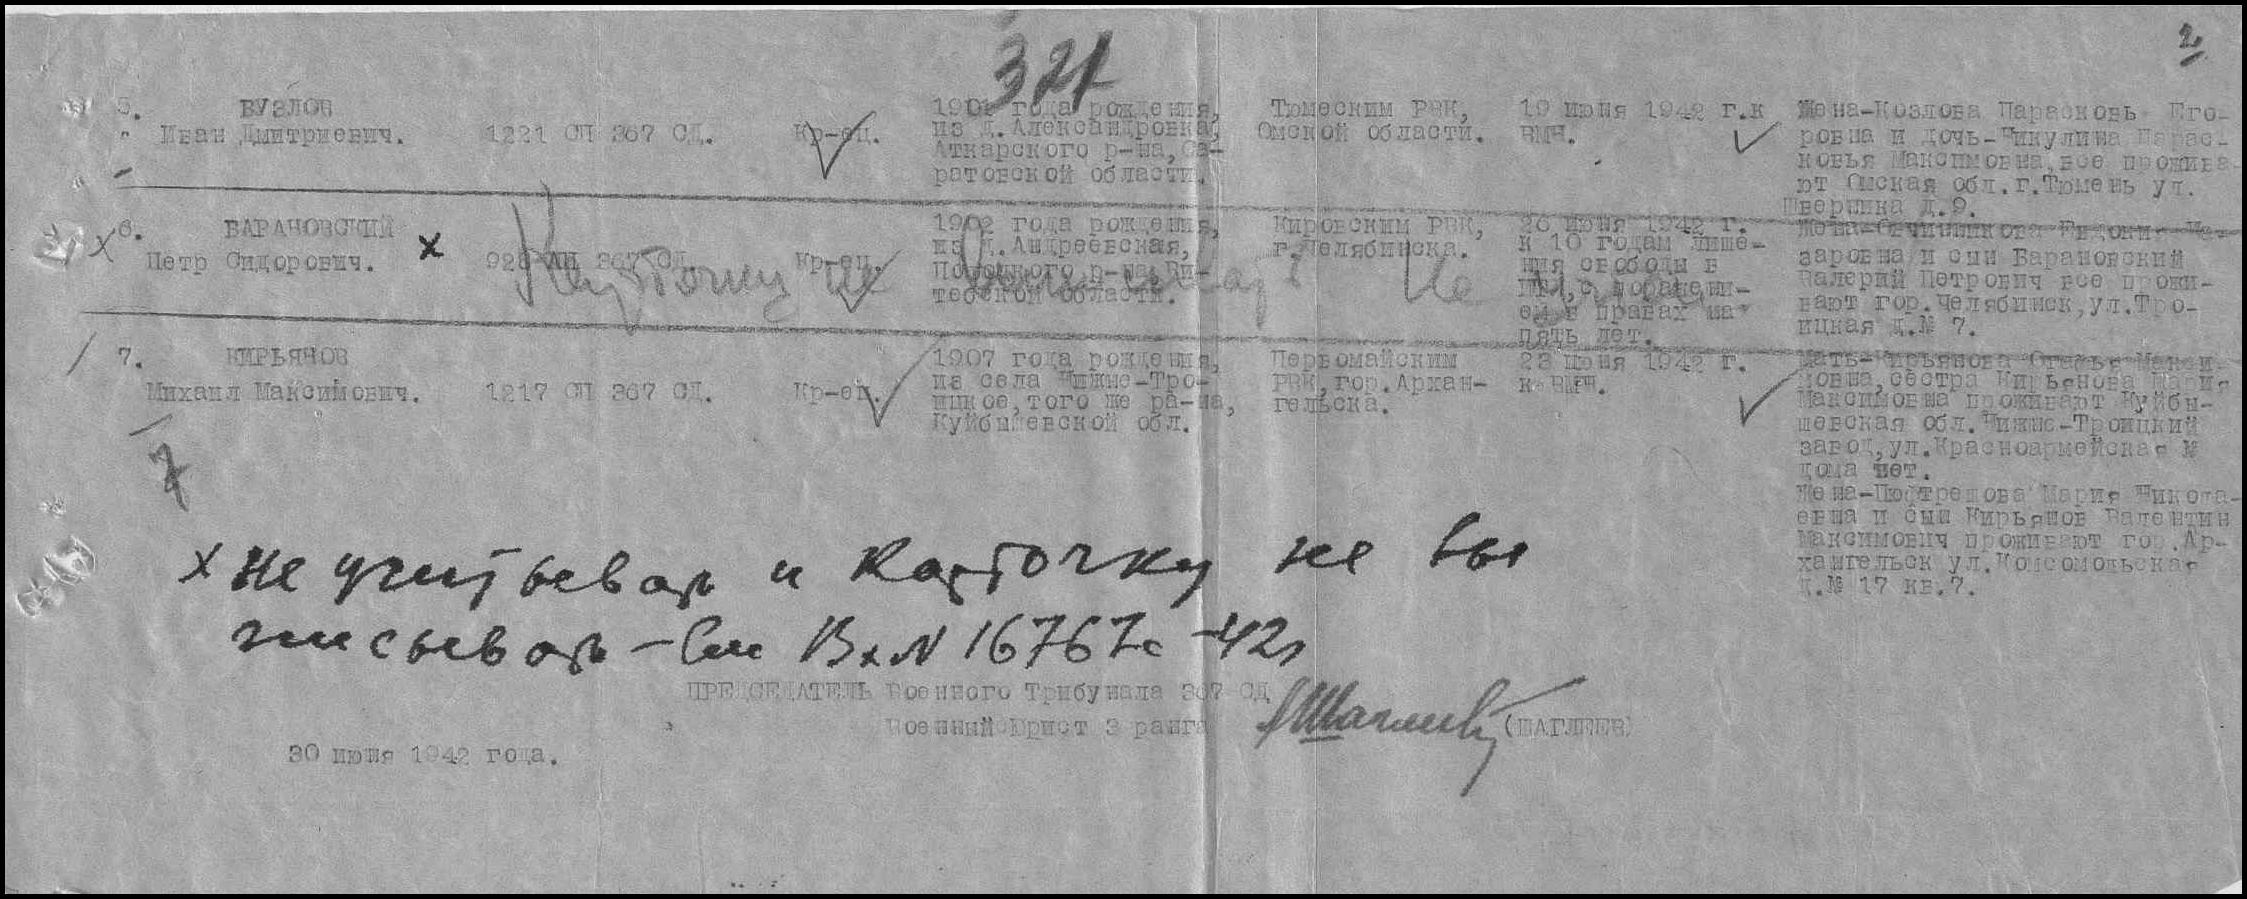 321
2
5. ВУЗЛОВ
Иван Дмитриевич. 1221 СП 367 СД. Кр-ец.
1901 года рождения,
из д. Александровка,
Аткарского р-на, Са-
ратовской области.
Тюменским РВК,
Омской области.
19 июня 1942 г. к
ВМН.
Жена-Козлова Парасковь Его-
ровна и дочь-Никулина Парас-
ковья Максимовна, все прожива-
ют Омская обл. г. Тюмень ул.
д. 9.
6. БАРАНОВСКИЙ х
Петр Сидорович. СП 367 СД. Кр-ец.
1902 года рождения,
из д. Андреевская,
р-на Ви-
тебской области.
Кировским РВК,
г. Челябинска.
26 июня 1942 г.
к 10 годам лише-
ния свободы в
ИТЛ, с поражени-
ем в правах на
пять лет.
Жена-
заровна и сын Барановский
Валерий Петрович все прожи-
вают гор. Челябинск, ул. Тро-
ицкая д. № 7.
Карточку не не
7. КИРЬЯНОВ
Михаил Максимович. 1217 СП 367 СД. Кр-ец.
1907 года рождения,
из села Нижне-Тро-
ицкое, того же ра-на,
Куйбышевской обл.
Первомайским
РВК, гор. Архан-
гельска.
23 июня 1942 г.
к ВМН.
Мать-Кирьянова Макси-
мовна, сестра Кирьянова Мария
Максимовна проживают Куйбы-
шевская обл. Нижне-Троицкий
завод, ул. Красноармейская №
дома нет.
Жена- Мария Никола-
евна и сын Кирьянов Валентин
Максимович проживают гор. Ар-
хангельск ул. Комсомольская
д. № 17 кв. 7.
7
х Не учитывать и карточку не вы
писывать - См Вх N 16767с -42г
ПРЕДСЕДАТЕЛЬ Военного Трибунала 367 СД
Военный Юрист 3 ранга (ШАГЛЕЕВ)
30 июня 1942 года.